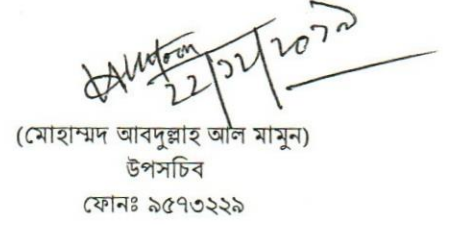 ২২/১২/২০১৯
(মোহাম্মদ আবদুল্লাহ আল মামুন)
উপসচিব
ফোনঃ ৯৫৭৩২২৯